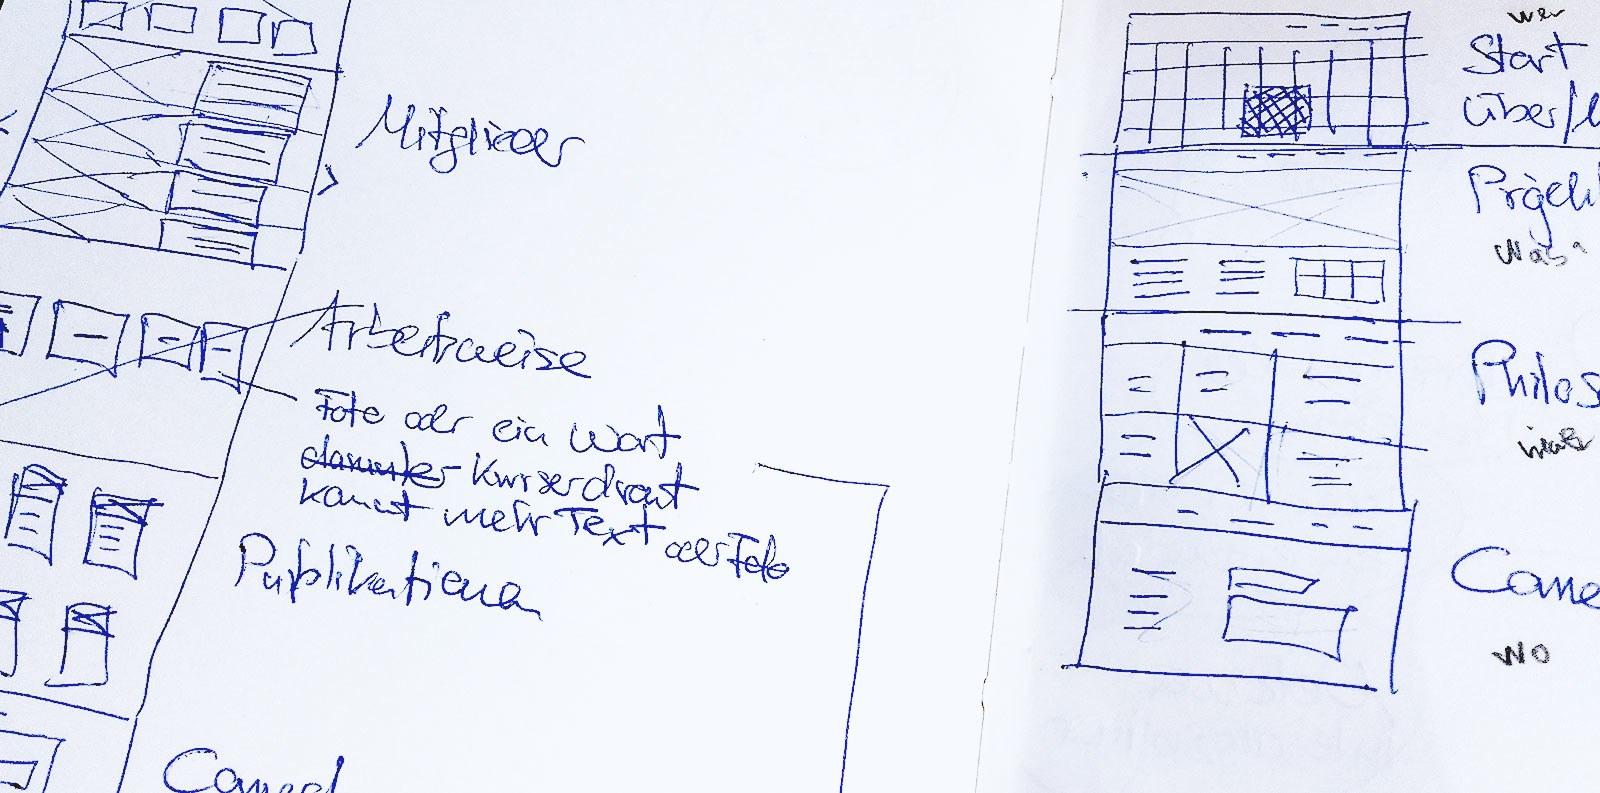 Mitglieder
Arbeitsweise
Foto oder ein Wort
darunter Kurzerdraut
kannt mehr Text oder Foto
Publikationen
wer
Start
über/
Projekt
Was?
Philos
wo